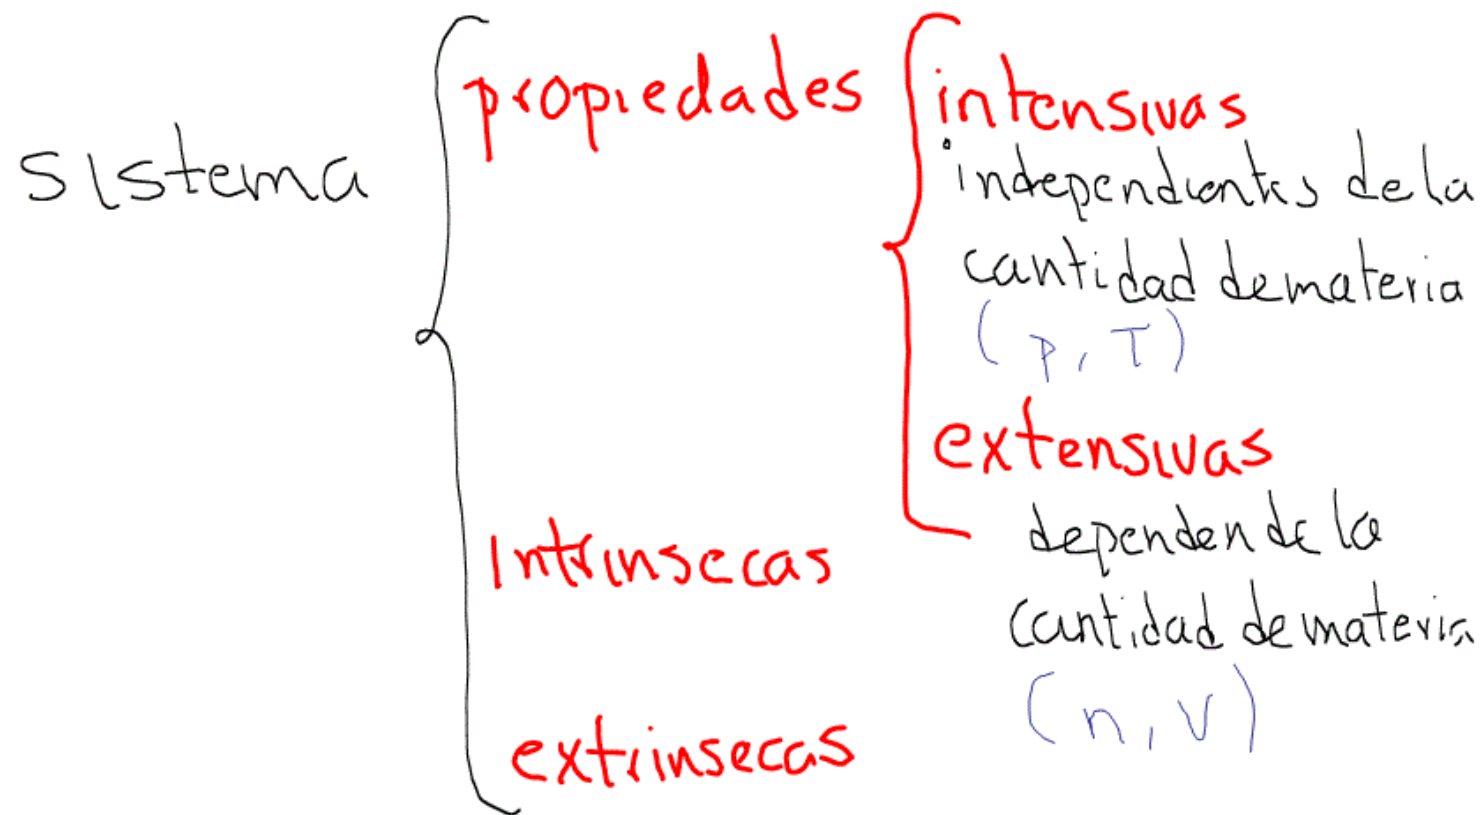 sistema
propiedades
intensivas
independientes de la
cantidad de materia
(P, T)
extensivas
dependen de la
cantidad de materia
(n, V)
Intrinsecas
extrinsecas